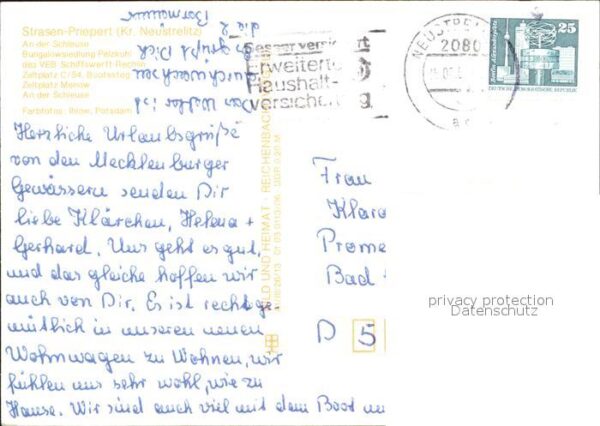 Strasen-Priepert (Kr. Neustrelitz)
An der Schleuse
Bungalowsiedlung Pelzkuhl
des VEB Schiffswerft Rechlin
Zeltplatz C/54, Bootssteg
Zeltplatz Marow
An der Schleuse
Farbfotos: Ihlow, Potsdam
Herzliche Urlaubsgrüße
von den Mecklenburger
Gewässern senden Dir
liebe Klärchen, Helena +
Gerhard. Uns geht es gut,
und das gleiche hoffen wir
auch von Dir. Es ist recht ge-
mütlich in unseren neuen
Wohnwagen zu Wohnen, wir
fühlen uns sehr wohl, wie zu
Hause. Wir sind auch viel mit dem Boot un
Das Wetter ist
durchwachsen
es grüßt Dich
die
BILD UND HEIMAT · REICHENBACH
Besser versichert
Erweiterte
Haushalt-
versicherung
NEUSTRELITZ
2080
25
DEUTSCHE DEMOKRATISCHE REPUBLIK
Frau
Klara
Prome
Bad
D 5
privacy protection
Datenschutz